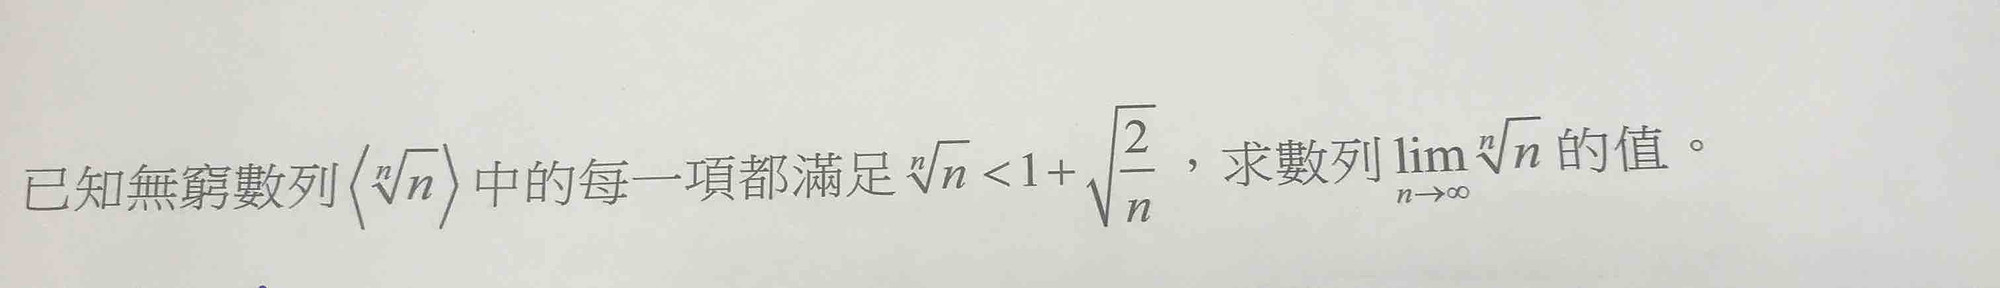 已知無窮數列⟨ⁿ√n⟩中的每一項都滿足 ⁿ√n < 1 + √(2/n)，求數列 lim_{n→∞} ⁿ√n 的值。